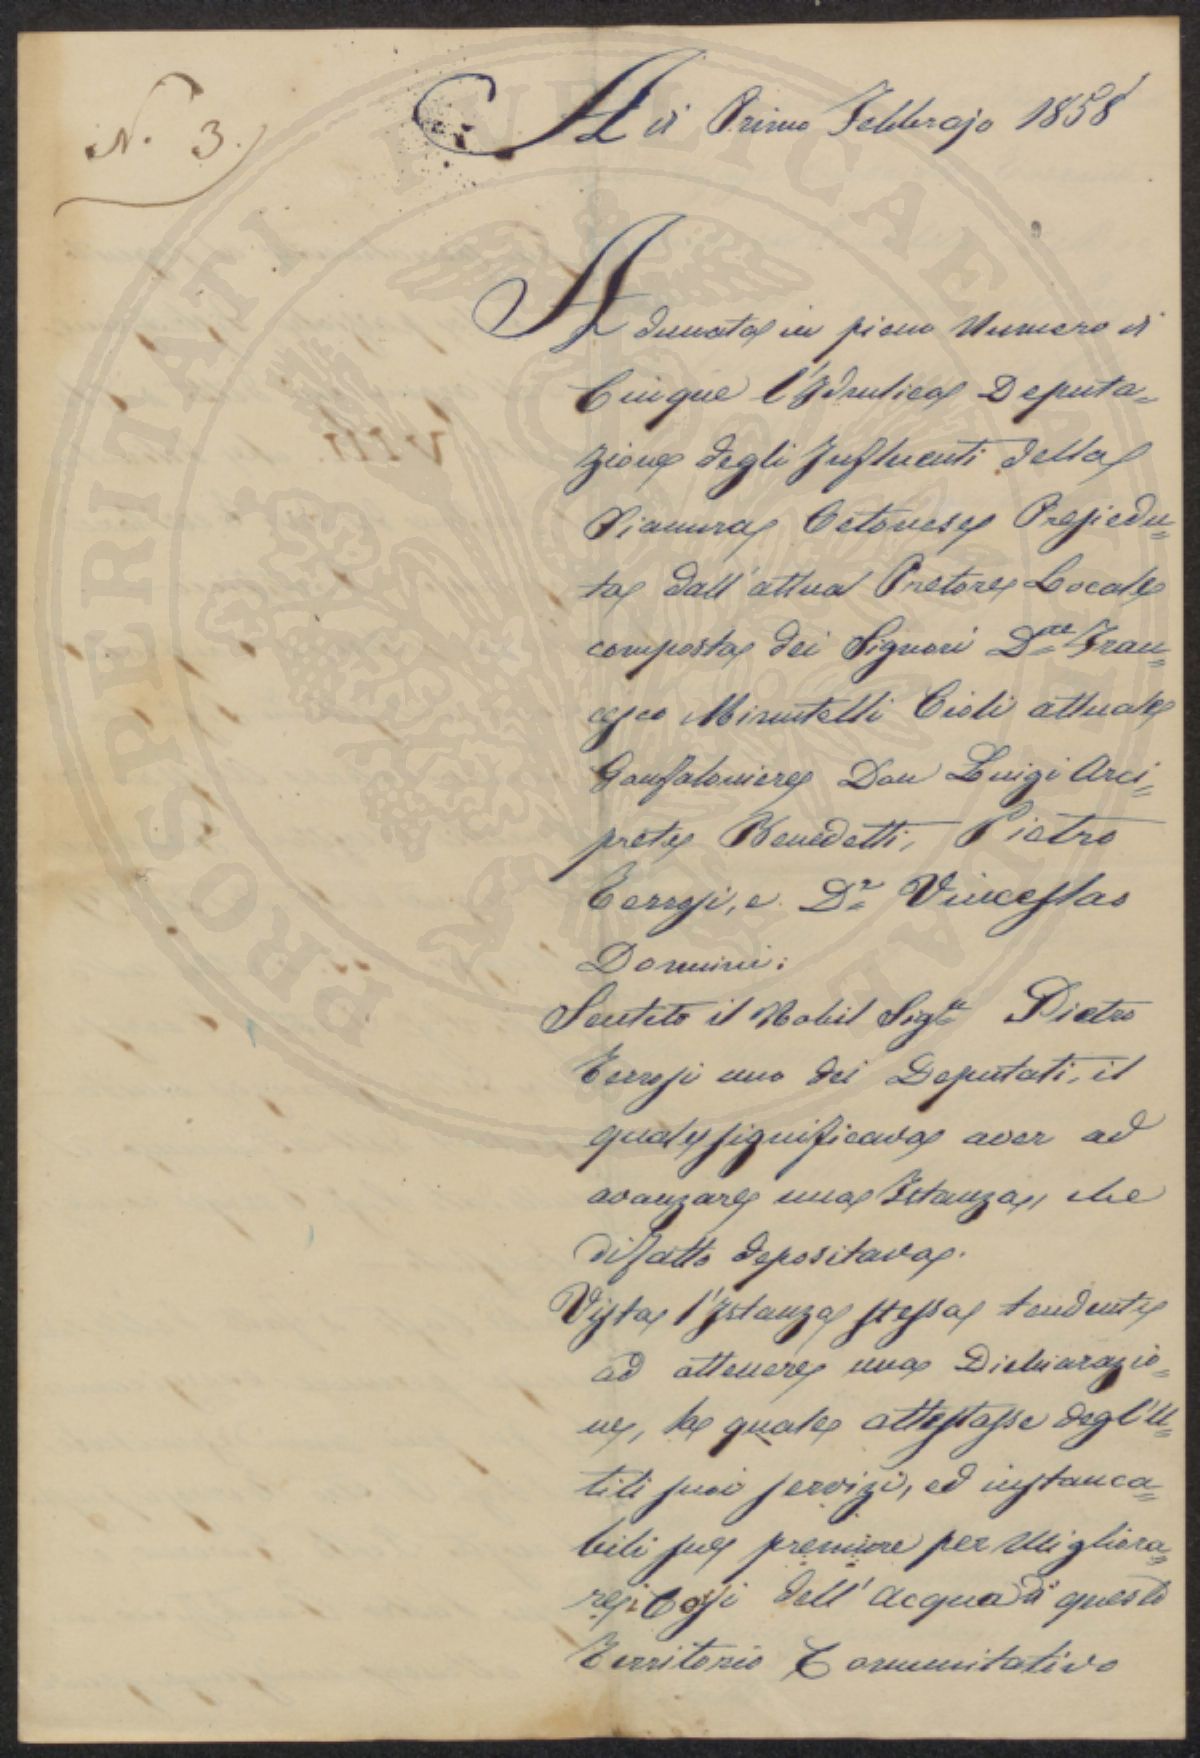 N. 3.
A dì Primo Febbrajo 1858
Adunata in pieno Numero di
Cinque l'Idraulica Deputa=
zione degli Influenti della
Pianura Cetonese Presiedu=
ta dall'attual Pretore Locale
composta dei Signori D.re Fran=
cesco Minutelli Cioli attuale
Gonfaloniere Don Luigi Arci=
prete Benedetti, Pietro
Terrosi, e D.r Vinceslao
Dominici:
Sentito il Nobil Sig.re Pietro
Terrosi uno dei Deputati, il
quale significava aver ad
avanzare una Istanza, che
difatto depositava.
Vista l'Istanza stessa tendente
ad ottenere una Dichiarazio=
ne, la quale attestasse degl'U=
tili suoi servizi, ed instanca=
bili sue premure per Migliora=
re i Corsi dell'acqua di questo
Territorio Comunitativo
PROSPERITATI PUBLICAE AUGENDAE